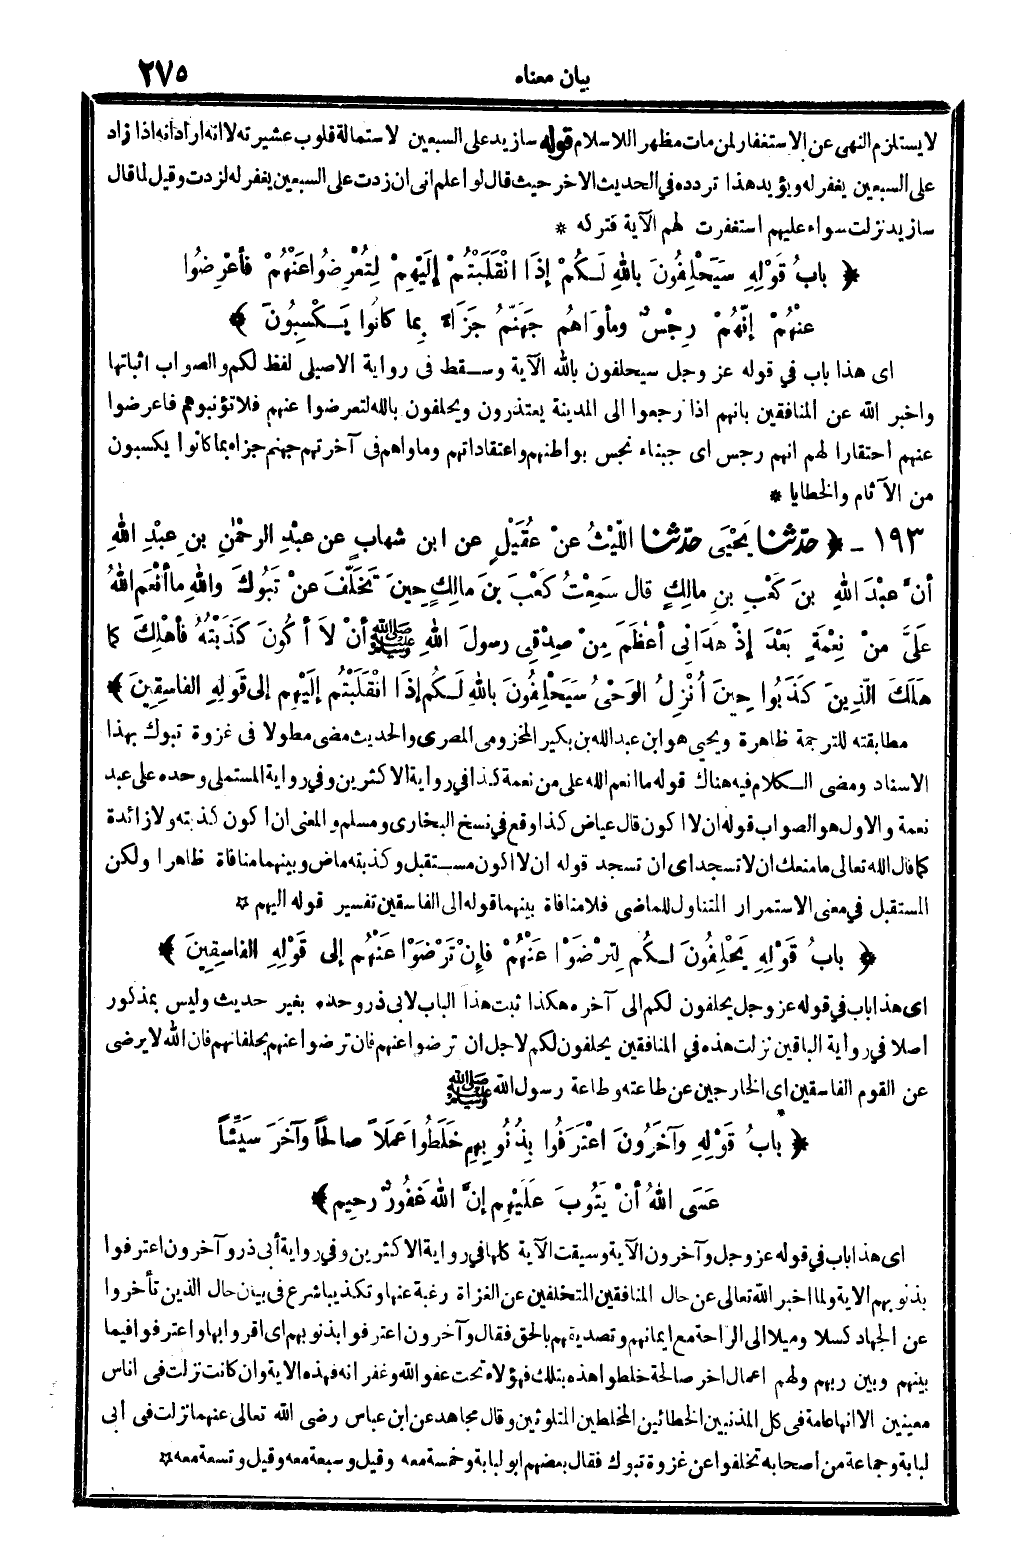 بيان معناه ٢٧٥
لايستلزم النهى عن الاستغفار لمن مات مظهر اللاسلام قوله سازيد على السبعين لاستمالة قلوب عشيرته لا انه اراد انه اذا زاد
على السبعين يغفر له ويؤيد هذا تردده في الحديث الاخر حيث قال لو اعلم انى ان زدت على السبعين يغفر له لزدت وقيل لما قال
سازيد نزلت سواء عليهم استغفرت لهم الآية فتركه *
﴿ بابُ قَوْلِهِ سَيَحْلِفُونَ باللهِ لَكُمْ إذَا انْقَلَبْتُمْ إلَيْهِمْ لِتُعْرِضُوا عَنْهُمْ فأعْرِضُوا
عنْهُمْ إنَّهُمْ رِجْسٌ ومأوَاهُم جَهَنّمُ جَزَاءً بِما كانُوا يَكْسِبُونَ ﴾
اى هذا باب في قوله عز وجل سيحلفون بالله الآية وسقط فى رواية الاصيلى لفظ لكم والصواب اثباتها
واخبر الله عن المنافقين بانهم اذا رجعوا الى المدينة يعتذرون ويحلفون بالله لتعرضوا عنهم فلا تؤنبوهم فاعرضوا
عنهم احتقارا لهم انهم رجس اى جبناء نجس بواطنهم واعتقاداتهم وماواهم فى آخرتهم جهنم جزاء بما كانوا يكسبون
من الآثام والخطايا *
١٩٣ - ﴿ حدّثنا يَحْيَى حدّثنا اللَّيْثُ عنْ عُقَيْلٍ عن ابن شهابٍ عن عبْدِ الرحْمٰنِ بن عبْدِ اللهِ
أنَّ عبْدَ اللهِ بنَ كَعْبِ بنِ مالِكٍ قال سَمِعْتُ كَعْبَ بنَ مالِكٍ حِينَ تَخَلَّفَ عنْ تَبُوكَ واللهِ ما أنْعَمَ اللهُ
عَلَىَّ منْ نِعْمَةٍ بَعْدَ إذْ هَدَانِى أعْظَمَ مِنْ صِدْقِى رسولَ اللهِ ﷺ أنْ لاَ أكُونَ كَذَبْتُهُ فأهْلِكَ كما
هَلَكَ الّذِينَ كَذَبُوا حِينَ أُنْزِلُ الوَحْىُ سَيَحْلِفُونَ باللهِ لَكُم إذَا انْقَلَبْتُم إلَيْهِم إلى قَولِهِ الفاسِقِينَ ﴾
مطابقته للترجمة ظاهرة ويحيى هو ابن عبد الله بن بكير المخزومى المصرى والحديث مضى مطولا فى غزوة تبوك بهذا
الاسناد ومضى الكلام فيه هناك قوله ما انعم الله على من نعمة كذا في رواية الاكثرين وفي رواية المستملى وحده على عبد
نعمة والاول هو الصواب قوله ان لا اكون قال عياض كذا وقع في نسخ البخارى ومسلم والمعنى ان اكون كذبته ولا زائدة
كما قال الله تعالى ما منعك ان لا تسجد اى ان تسجد قوله ان لا اكون مستقبل وكذبته ماض وبينهما منافاة ظاهرا ولكن
المستقبل في معنى الاستمرار المتناول للماضى فلا منافاة بينهما قوله الى الفاسقين تفسير قوله اليهم *
﴿ بابُ قَوْلِهِ يَحْلِفُونَ لكُم لِترْضَوْا عَنْهُمْ فإنْ تَرْضَوْا عَنْهُم إلى قَوْلِهِ الفاسِقِينَ ﴾
اى هذا باب في قوله عز وجل يحلفون لكم الى آخره هكذا ثبت هذا الباب لابى ذر وحده بغير حديث وليس بمذكور
اصلا في رواية الباقين نزلت هذه في المنافقين يحلفون لكم لاجل ان ترضوا عنهم فان ترضوا عنهم بحلفانهم فان الله لا يرضى
عن القوم الفاسقين اى الخارجين عن طاعته وطاعة رسول الله ﷺ
﴿ بابُ قَوْلِهِ وآخَرُونَ اعْتَرَفُوا بِذُنُوبِهِم خَلَطُوا عَمَلاً صالحاً وآخَرَ سَيِّئاً
عَسَى اللهُ أنْ يَتُوبَ عَلَيْهِم إنَّ اللهَ غَفُورٌ رحِيم ﴾
اى هذا باب في قوله عز وجل وآخرون الآية وسيقت الآية كلها في رواية الاكثرين وفي رواية أبى ذر وآخرون اعترفوا
بذنوبهم الاية ولما اخبر الله تعالى عن حال المنافقين المتخلفين عن الغزاة رغبة عنها وتكذيبا شرع فى بيان حال الذين تأخروا
عن الجهاد كسلا وميلا الى الراحة مع ايمانهم وتصديقهم بالحق فقال وآخرون اعترفوا بذنوبهم اى اقروا بها واعترفوا فيما
بينهم وبين ربهم ولهم اعمال اخر صالحة خلطوا هذه بتلك فهؤلاء تحت عفو الله وغفرانه فهذه الاية وان كانت نزلت فى اناس
معينين الا انها عامة فى كل المذنبين الخطائين المخلطين المتلوثين وقال مجاهد عن ابن عباس رضى الله تعالى عنهما نزلت فى أبى
لبابة وجماعة من اصحابه تخلفوا عن غزوة تبوك فقال بعضهم ابو لبابة وخمسة معه وقيل وسبعة معه وقيل وتسعة معه *